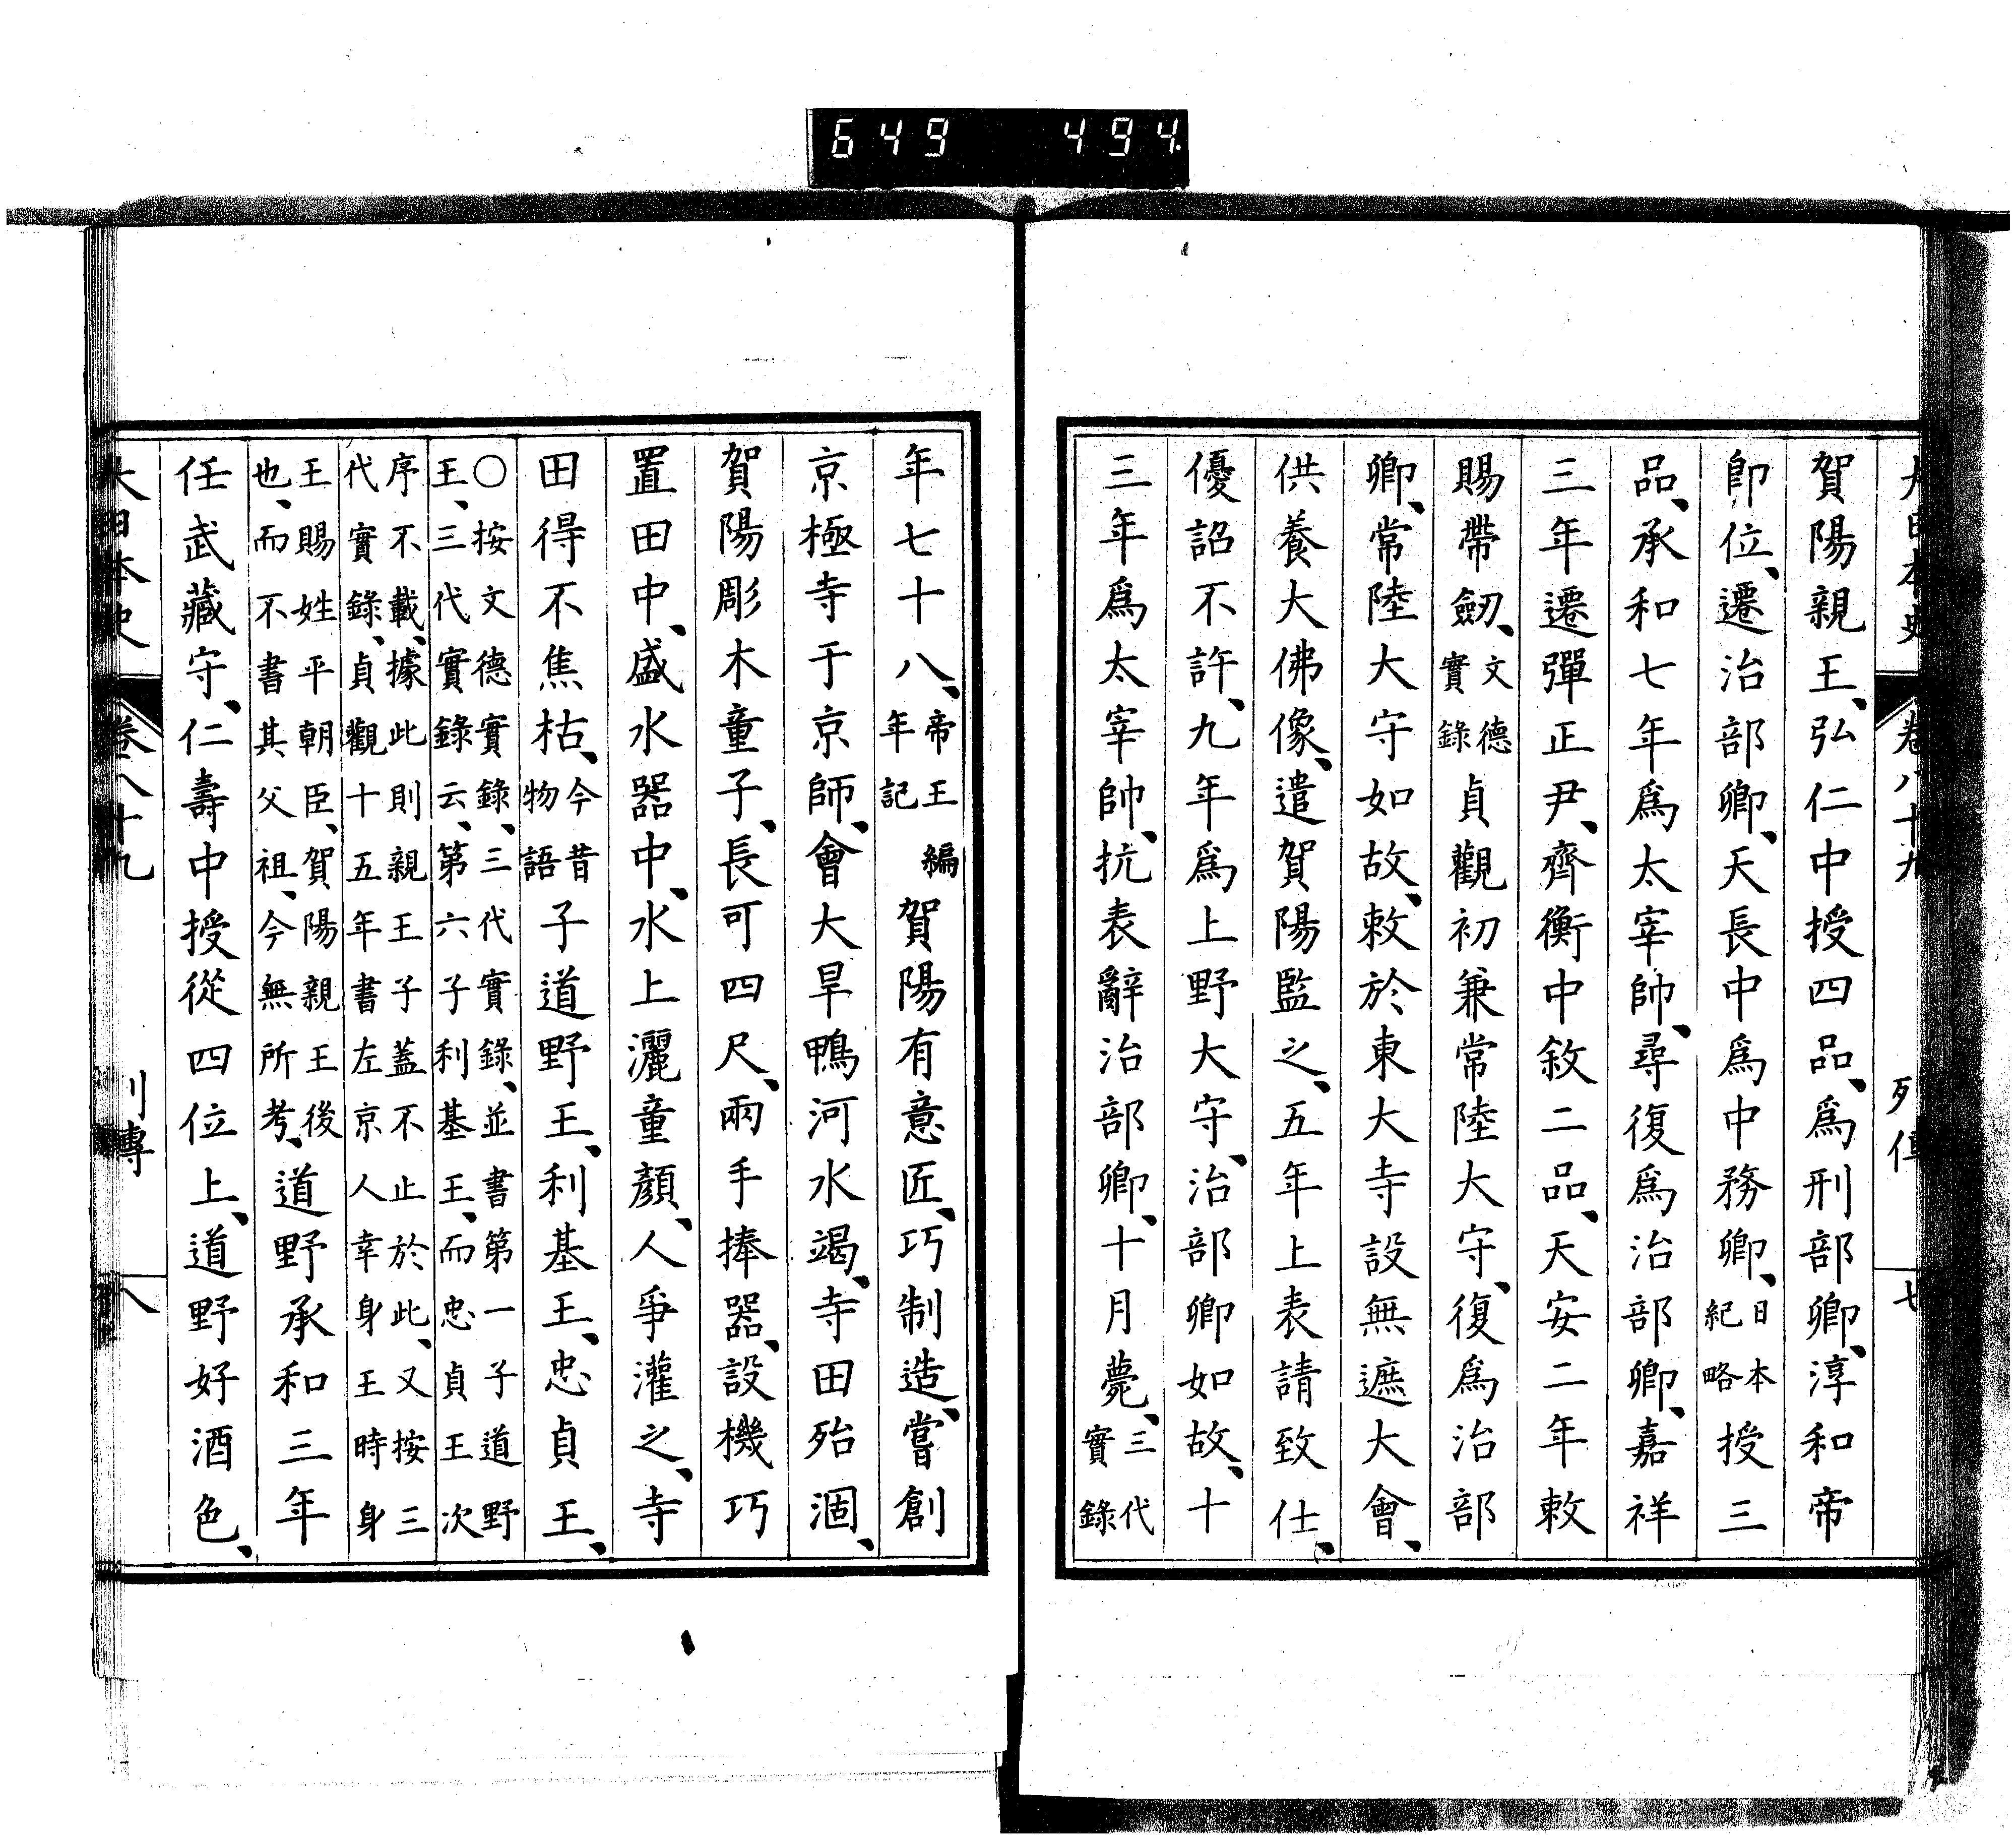 649 494
大日本史 卷八十九 列傳 七
賀陽親王、弘仁中授四品、爲刑部卿、淳和帝
卽位、遷治部卿、天長中爲中務卿、日本紀略授三
品、承和七年爲太宰帥、尋復爲治部卿、嘉祥
三年遷彈正尹、齊衡中敘二品、天安二年敕
賜帶劒、文德實錄貞觀初兼常陸大守、復爲治部
卿、常陸大守如故、敕於東大寺設無遮大會、
供養大佛像、遣賀陽監之、五年上表請致仕、
優詔不許、九年爲上野大守、治部卿如故、十
三年爲太宰帥、抗表辭治部卿、十月薨、三代實錄
年七十八、帝王編年記賀陽有意匠、巧制造、嘗創
京極寺于京師、會大旱鴨河水竭、寺田殆涸、
賀陽彫木童子、長可四尺、兩手捧器、設機巧
置田中、盛水器中、水上灑童顏、人爭灌之、寺
田得不焦枯、今昔物語子道野王、利基王、忠貞王、
○按文德實錄、三代實錄、並書第一子道野
王、三代實錄云、第六子利基王、而忠貞王次
序不載、據此則親王子蓋不止於此、又按三
代實錄、貞觀十五年書左京人幸身王時身
王賜姓平朝臣、賀陽親王後
也、而不書其父祖、今無所考、道野承和三年
任武藏守、仁壽中授從四位上、道野好酒色、
大日本史 卷八十九 列傳 八